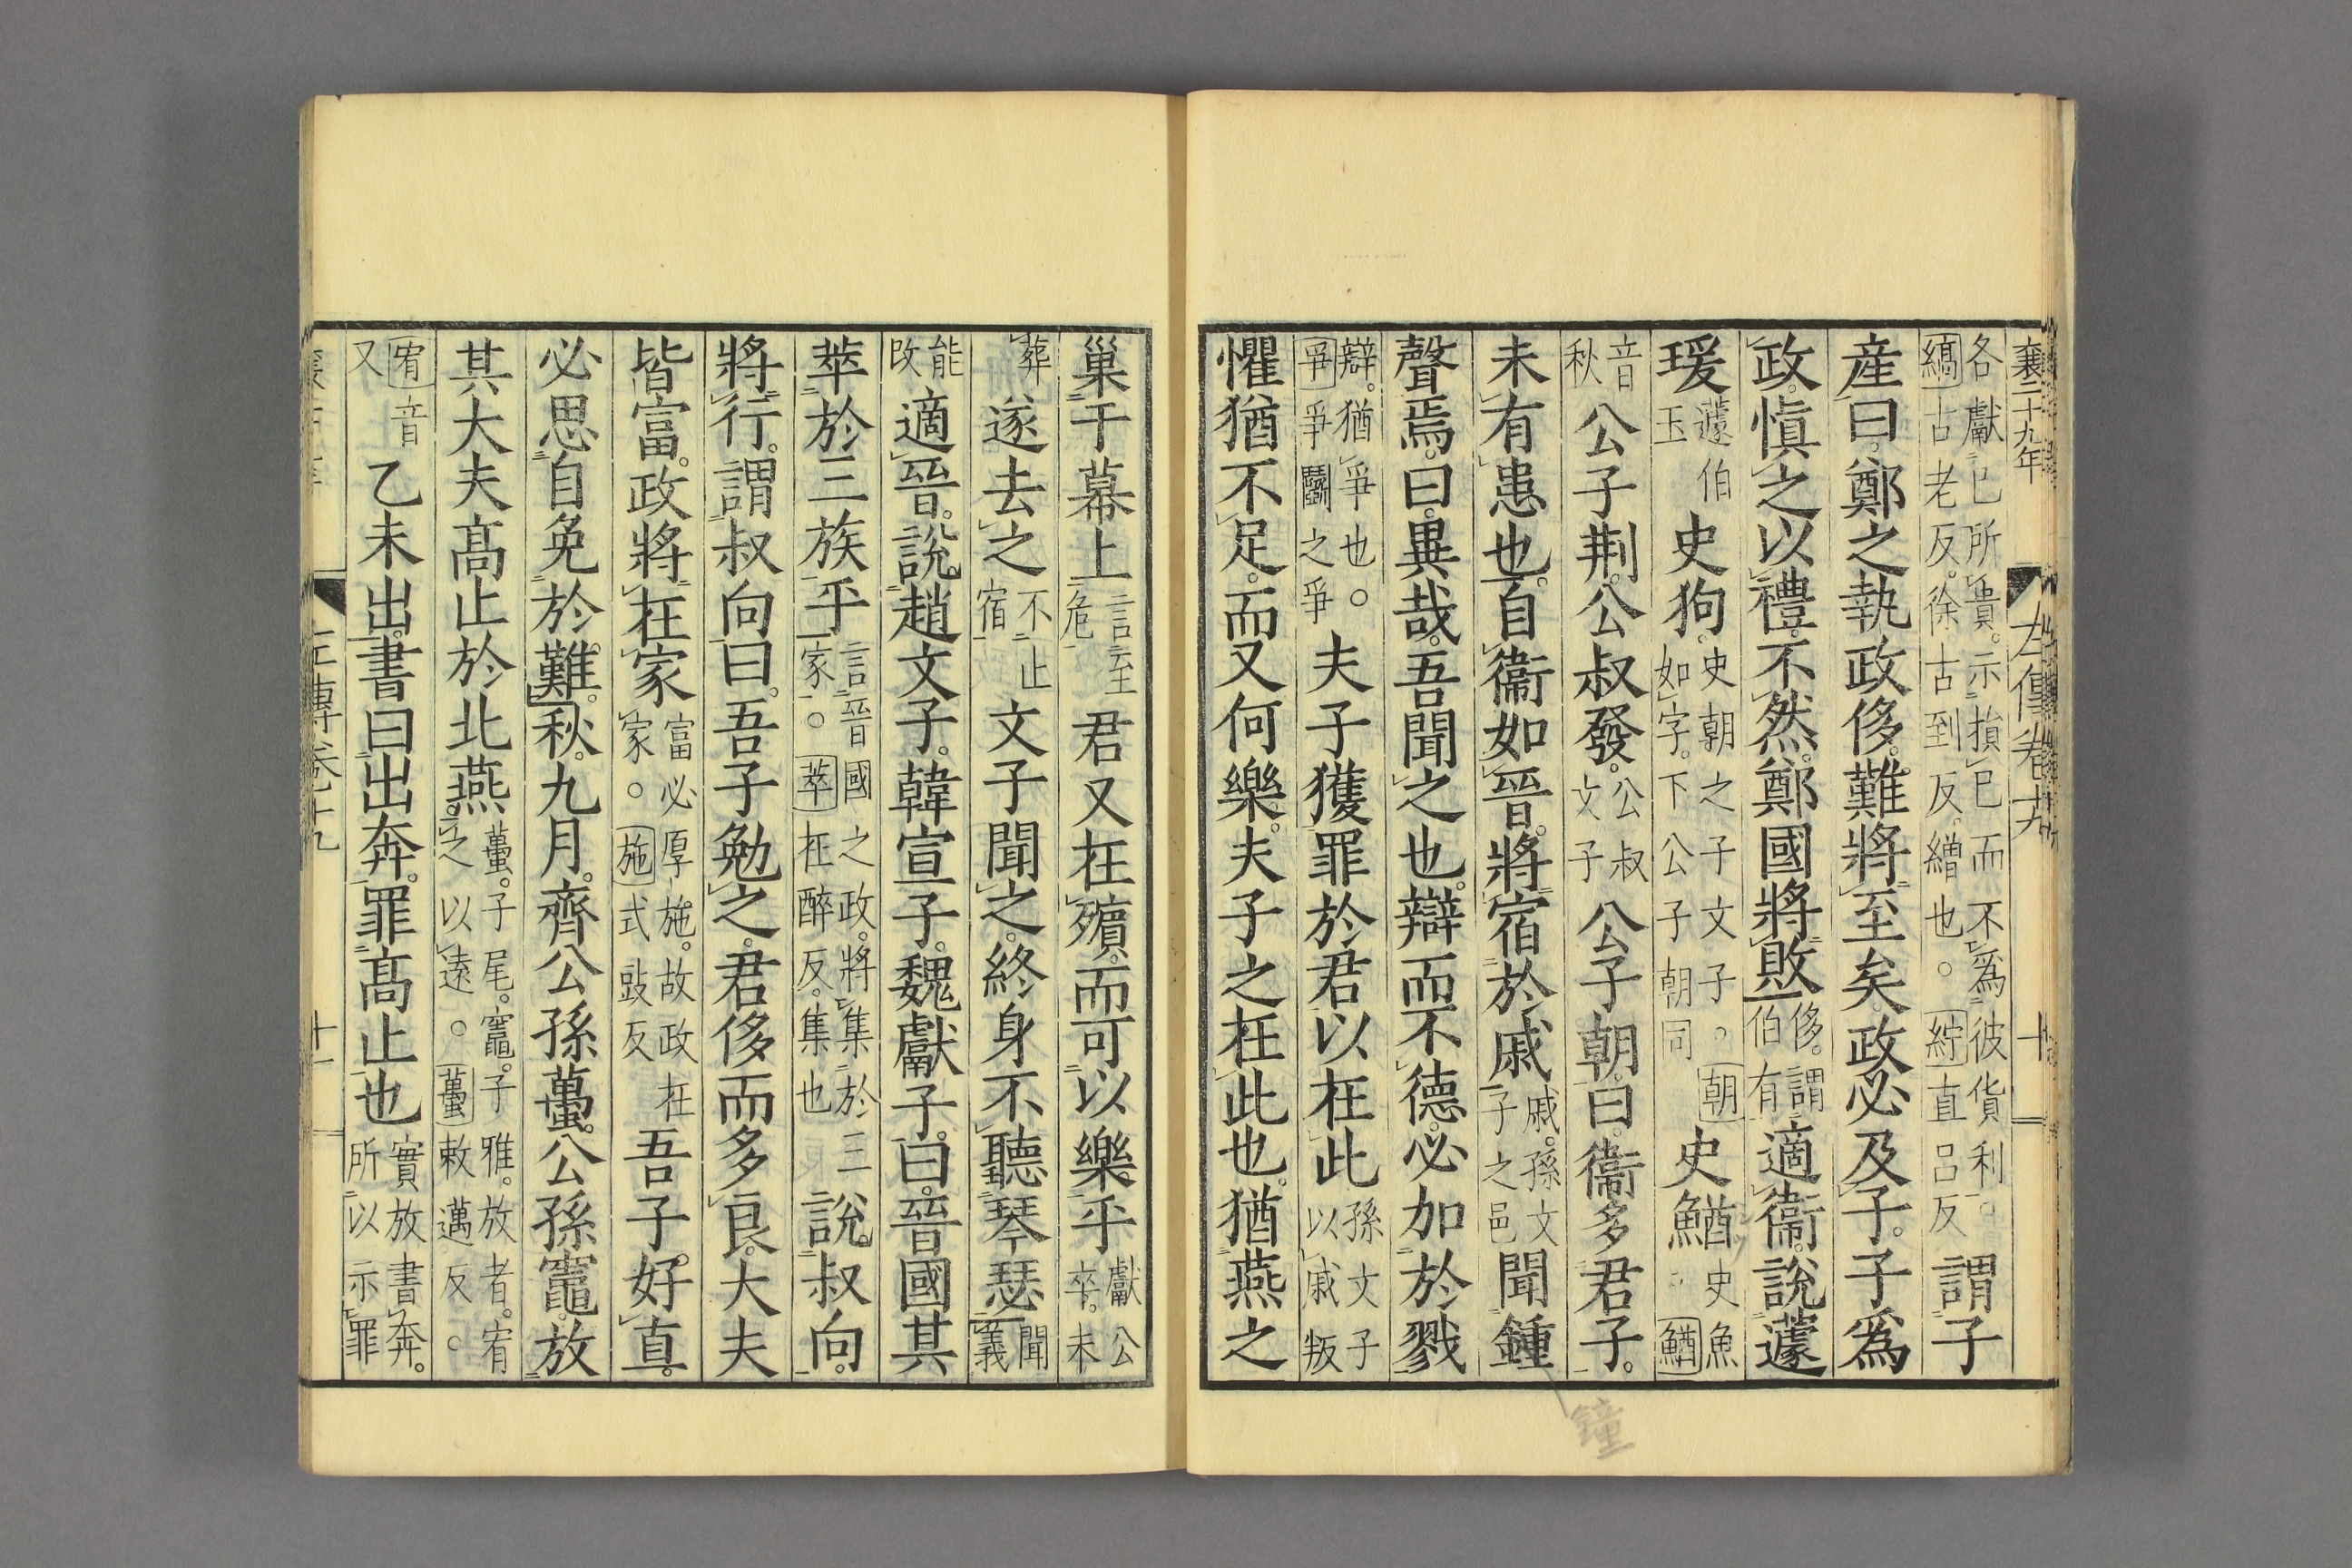 襄二十九年 左傳卷十九 十
各獻己所貴。示損己而不爲彼貨利。縞古老反。徐古到反。繒也。紵直呂反謂子
産曰。鄭之執政侈。難將至矣。政必及子。子爲
政。愼之以禮。不然。鄭國將敗侈。謂伯有適衞。說蘧
瑗蘧伯玉史狗。史朝之子文子。朝如字。下公子朝同史鰌史魚鰌
音秋公子荆。公叔發。公叔文子公子朝。曰。衞多君子。
未有患也。自衞如晉。將宿於戚戚。孫文子之邑聞鍾
聲焉。曰。異哉。吾聞之也。辯而不德。必加於戮
辯。猶爭也。爭爭鬬之爭夫子獲罪於君以在此孫文子以戚叛
懼猶不足。而又何樂。夫子之在此也。猶燕之
鐘
巢于幕上言至危君又在殯。而可以樂乎獻公卒。未
葬遂去之不止宿文子聞之。終身不聽琴瑟聞義
能改適晉。說趙文子。韓宣子。魏獻子。曰。晉國其
萃於三族乎言晉國之政。將集於三家。萃在醉反。集也說叔向。
將行。謂叔向曰。吾子勉之。君侈而多良。大夫
皆富。政將在家富必厚施。故政在家。施式豉反吾子。好直。
必思自免於難。秋。九月。齊公孫蠆。公孫竈。放
其大夫高止於北燕。蠆。子尾。竈。子雅。放者。宥之以遠。蠆敕邁反。
宥音又乙未出。書曰出奔。罪高止也實放書奔。所以示罪